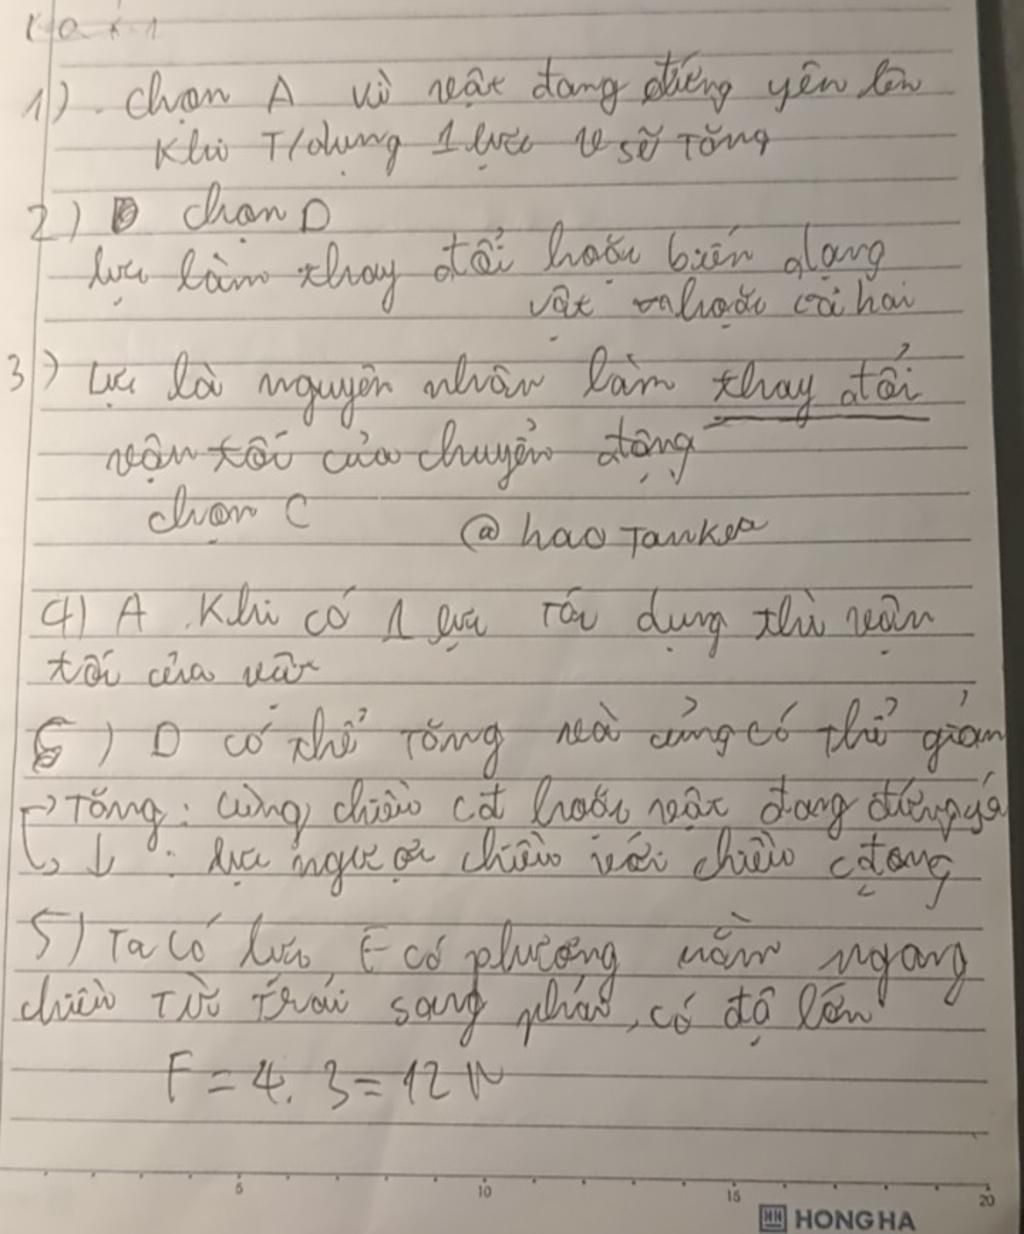 1) . chọn A vì vật đang đứng yên lên
Khi T/dụng 1 lực v sẽ Tăng
2) chọn D
lực làm thay đổi hoặc biến dạng
vật hoặc cả hai
3) Lực là nguyên nhân làm thay đổi
vận tốc của chuyển động
chọn C @ hao Tanker
4) A . Khi có 1 lực Tác dụng thì vận
tốc của vật
6) D có thể Tăng mà cũng có thể giảm
→ Tăng : Cùng chiều cđ hoặc vật đang đứng yê
↳ ↓ : lực ngược chiều với chiều cđộng
5) Ta có lực F có phương nằm ngang
chiều Từ trái sang phải, có độ lớn
F = 4. 3 = 12 N
5 10 15 20
HH HONG HA